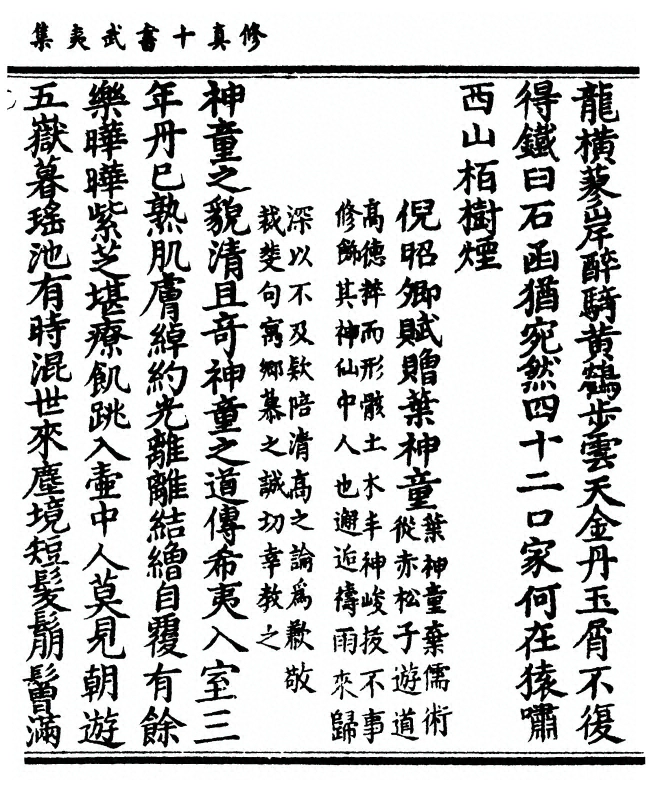 修真十書武夷集
龍橫蓼岸醉騎黃鵠步雲天金丹玉屑不復
得鐵臼石函猶宛然四十二口家何在猿嘯
西山栢樹煙
倪昭卿賦贈葉神童葉神童棄儒術
從赤松子遊道
高德粹而形骸土木丰神峻拔不事
修飾其神仙中人也邂逅禱雨來歸
深以不及欵陪清高之論為歉敬
裁斐句寓鄉慕之誠切幸教之
神童之貌清且奇神童之道傳希夷入室三
年丹已熟肌膚綽約光離離結繒自覆有餘
樂曄曄紫芝堪療飢跳入壺中人莫見朝遊
五嶽暮瑤池有時混世來塵境短髮鬅鬙滿